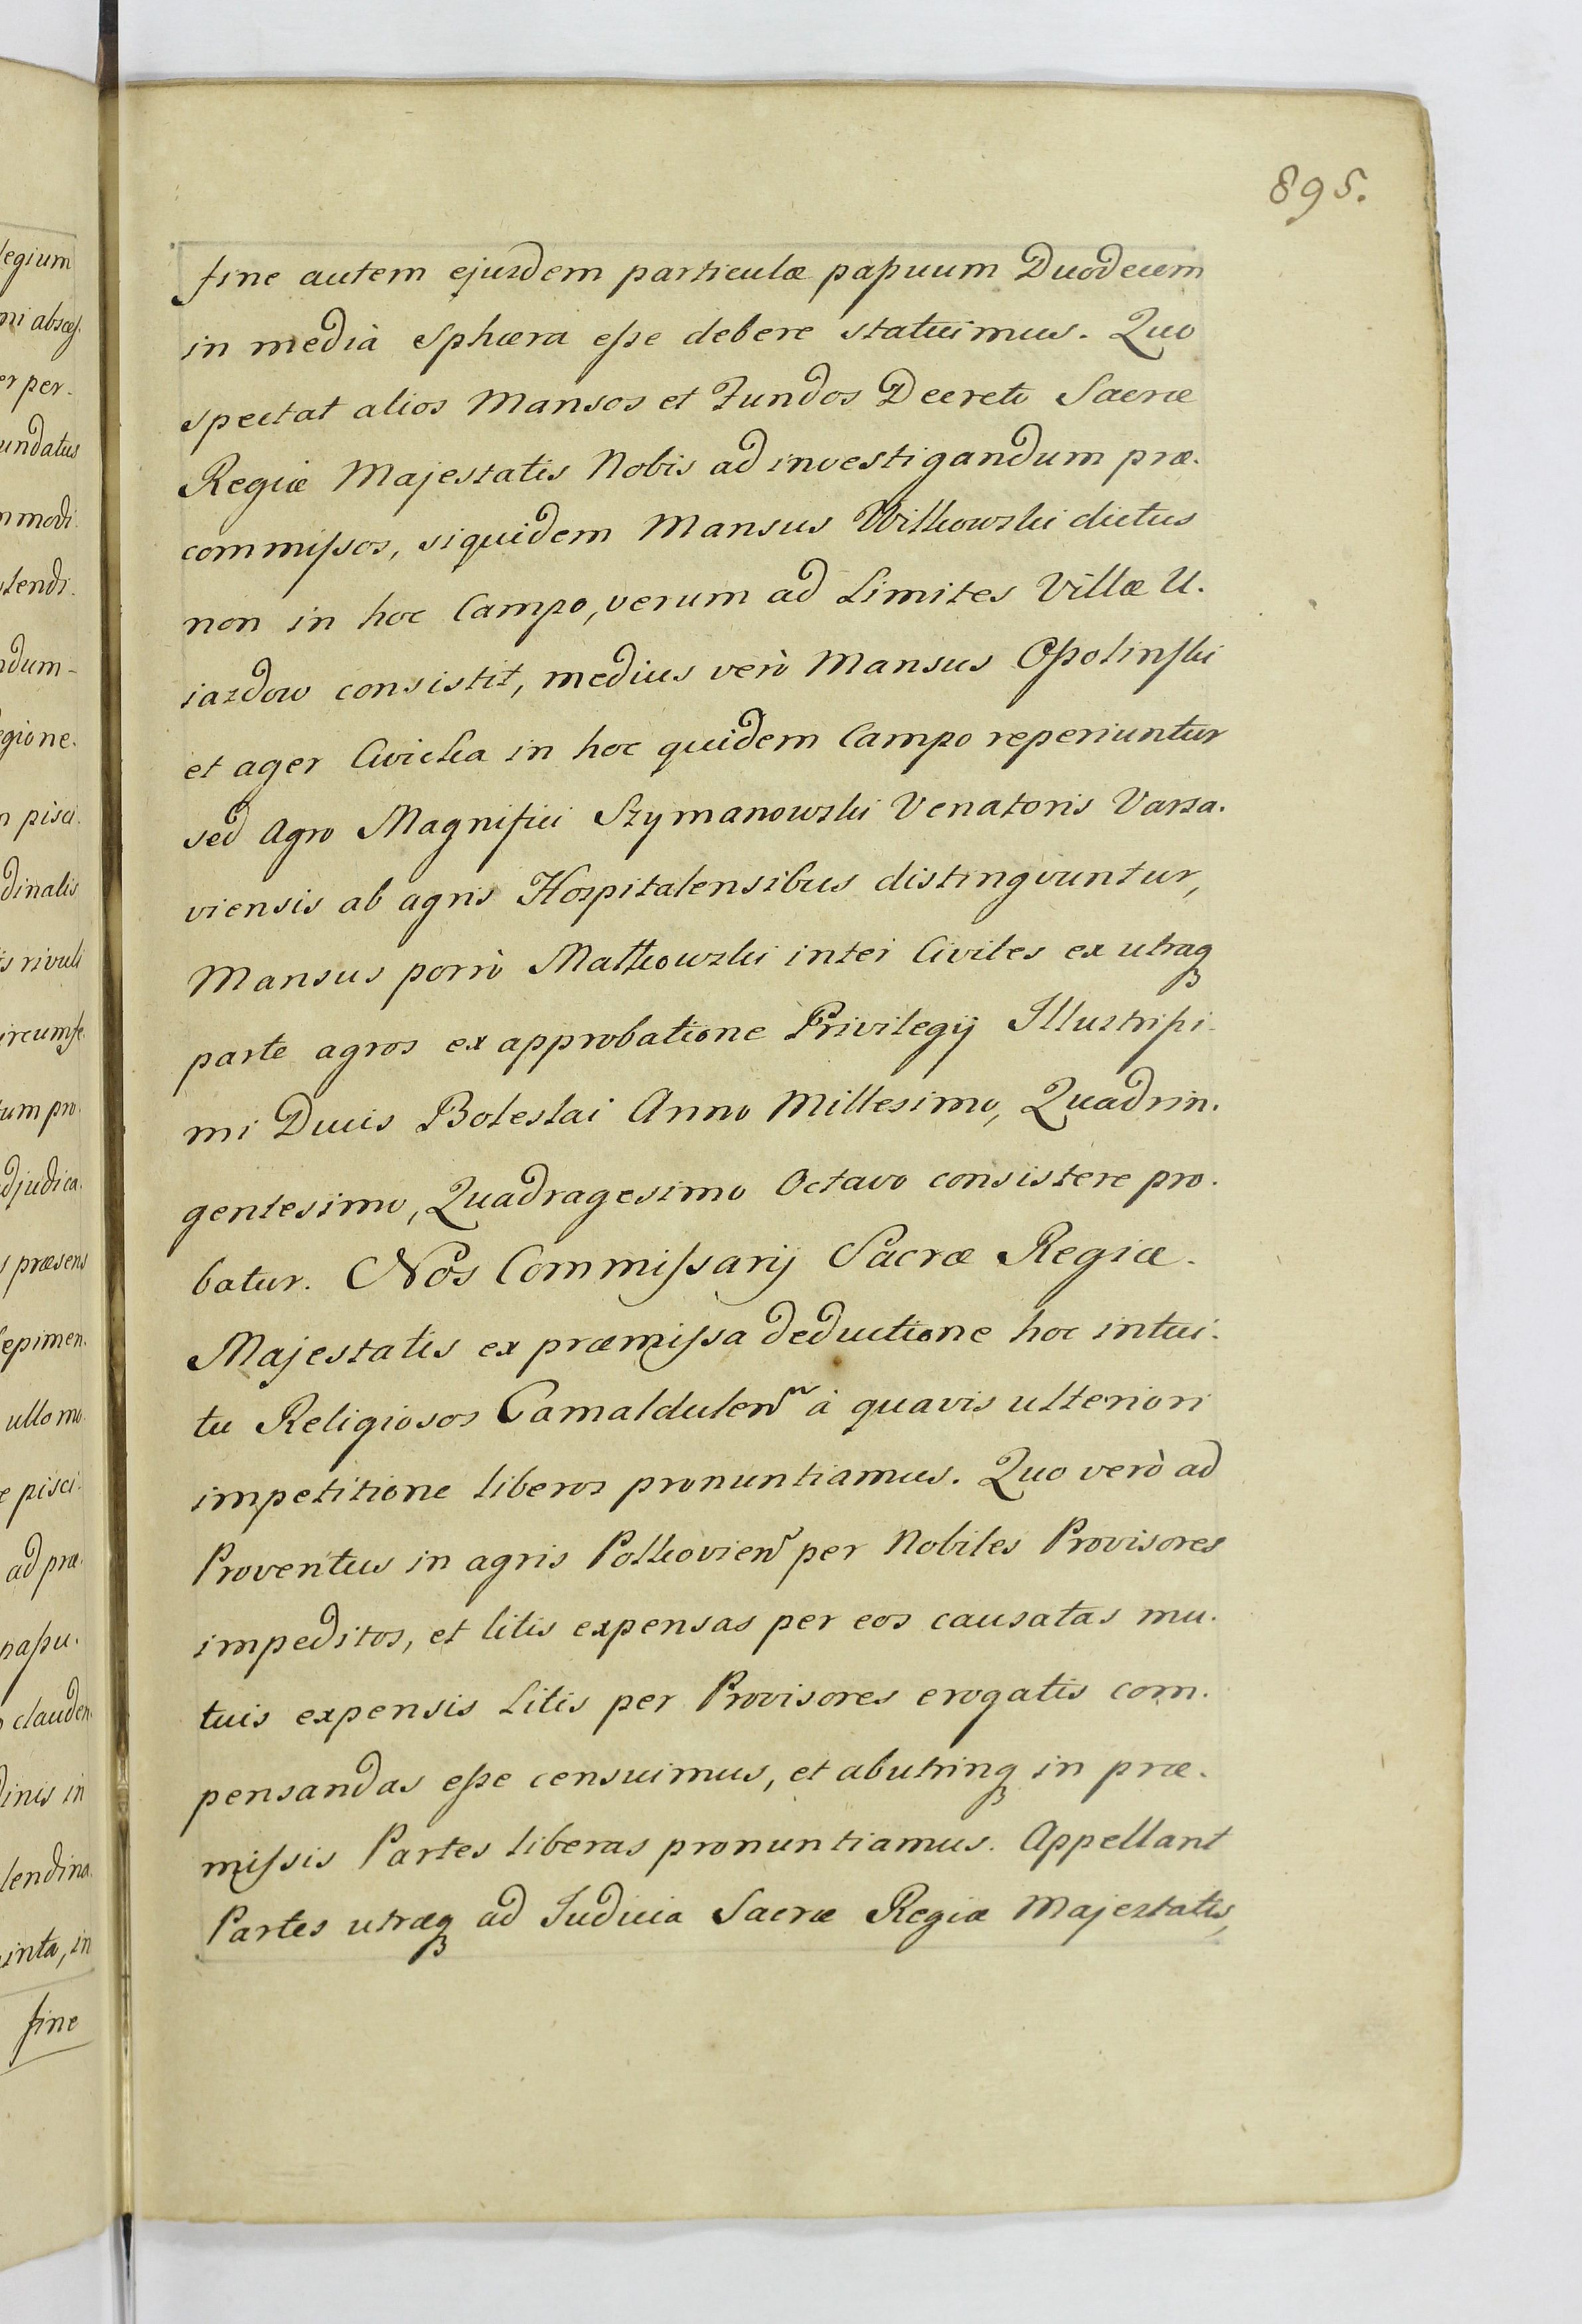 895.
fine autem ejusdem particulæ passuum Duodecim
in mediâ Sphæra esse debere statuimus. Quo
spectat alios Mansos et Fundos Decreto Sacræ
Regiæ Majestatis Nobis ad investigandum præ-
commissos, siquidem Mansus Witkowski dictus
non in hoc Campo, verum ad Limites Villæ U-
iazdow consistit, medius verò Mansus Opolinski
et ager Cwicka in hoc quidem Campo reperiuntur
sed Agro Magnifici Szymanowski Venatoris Varsa-
viensis ab agris Hospitalensibus distingvuntur,
Mansus porrò Matkowski inter Civiles ex utraq
parte agros ex approbatione Privilegij Illustrissi-
mi Ducis Boleslai Anno Millesimo, Quadrin-
gentesimo, Quadragesimo Octavo consistere pro-
batur. Nos Commissarij Sacræ Regiæ
Majestatis ex præmissa deductione hoc intui-
tu Religiosos Camaldulen̄ à quavis ulteriori
impetitione liberos pronuntiamus. Quo verò ad
Proventus in agris Polkovien̄ per Nobiles Provisores
impeditos, et litis expensas per eos causatas mu-
tuis expensis Litis per Provisores erogatis com-
pensandas esse censuimus, et abutrinq in præ-
missis Partes liberas pronuntiamus. Appellant
Partes utræq ad Judicia Sacræ Regiæ Majestatis,